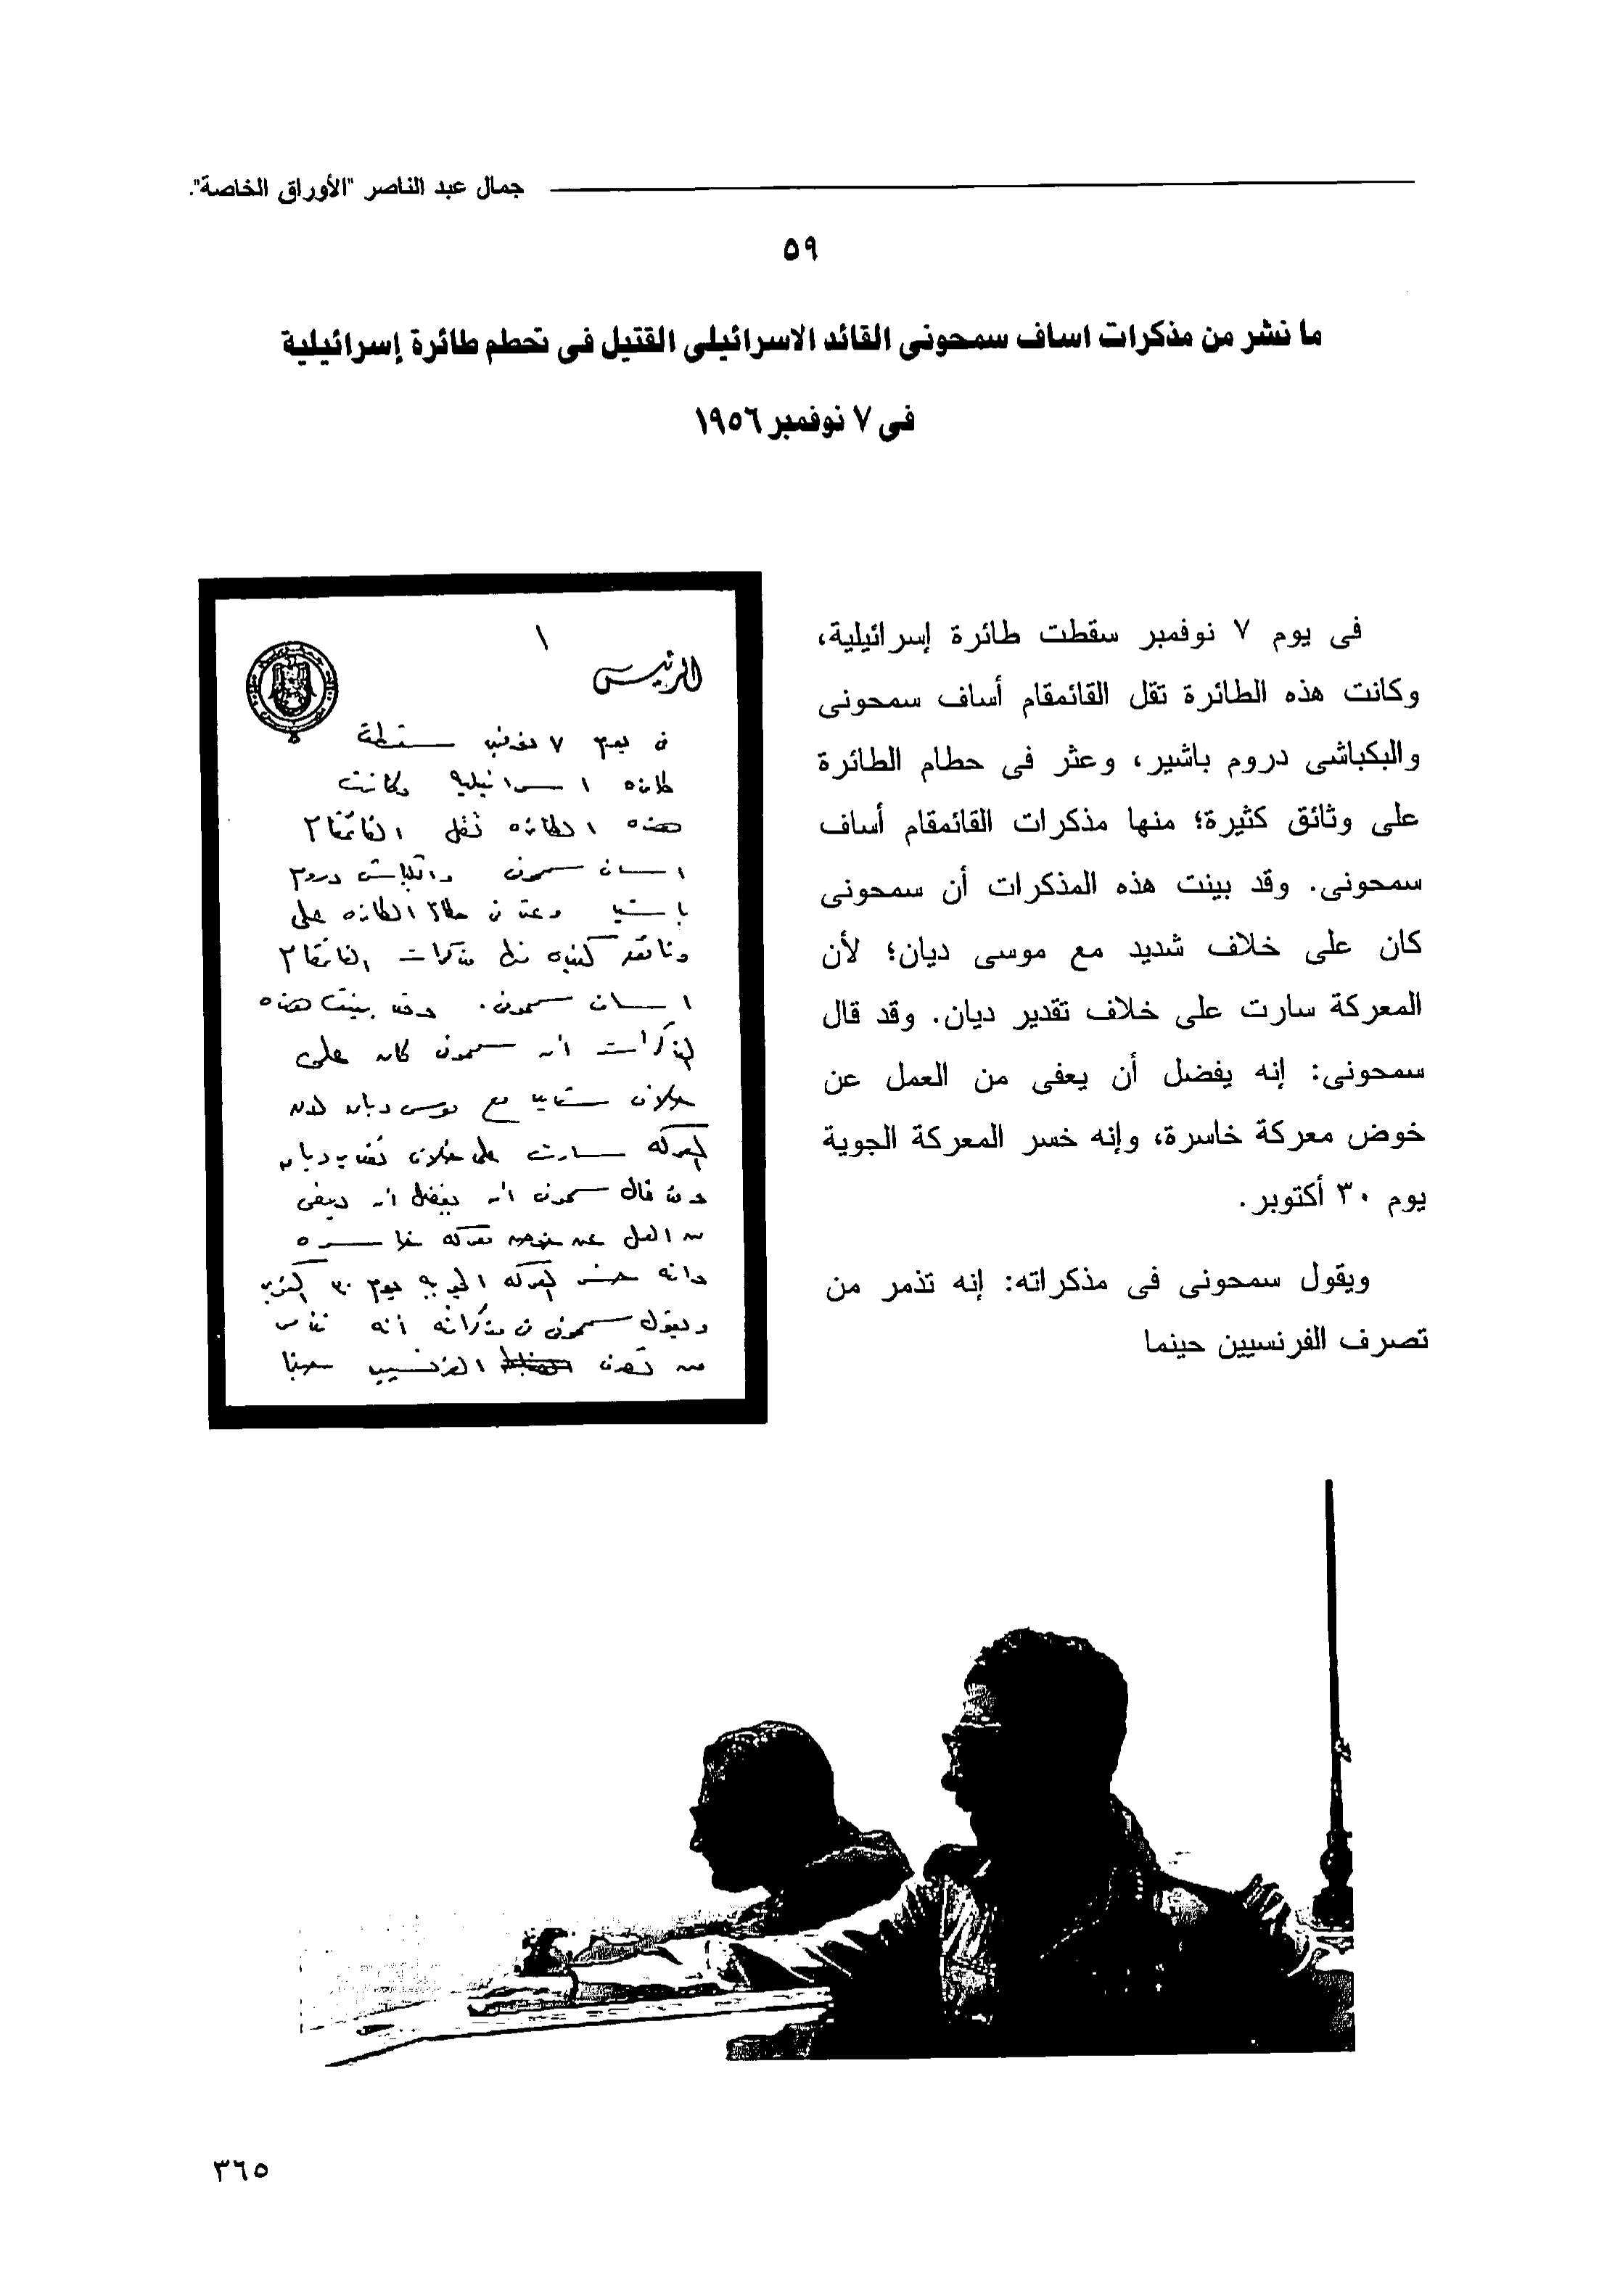 جمال عبد الناصر "الأوراق الخاصة".
٥٩
ما نشر من مذكرات اساف سمحونى القائد الاسرائيلى القتيل فى تحطم طائرة إسرائيلية
فى ٧ نوفمبر ١٩٥٦
فى يوم ٧ نوفمبر سقطت طائرة إسرائيلية،
وكانت هذه الطائرة تقل القائمقام أساف سمحونى
والبكباشى دروم باشير، وعثر فى حطام الطائرة
على وثائق كثيرة؛ منها مذكرات القائمقام أساف
سمحونى. وقد بينت هذه المذكرات أن سمحونى
كان على خلاف شديد مع موسى ديان؛ لأن
المعركة سارت على خلاف تقدير ديان. وقد قال
سمحونى: إنه يفضل أن يعفى من العمل عن
خوض معركة خاسرة، وإنه خسر المعركة الجوية
يوم ٣٠ أكتوبر.
ويقول سمحونى فى مذكراته: إنه تذمر من
تصرف الفرنسيين حينما
١
الرئيس
فى يوم ٧ نوفمبر سقطة
طائره اسرائيلية وكانت
هذه الطائره تقل القائمقام
اساف سمحونى والبكباشى دروم
باشير وعثر فى حطام الطائره على
وثائق كثيره منها مذكرات القائمقام
اساف سمحونى. وقد بينت هذه
المذكرات أن سمحونى كان على
خلاف شديد مع موسى ديان لأن
المعركه سارت على خلاف تقدير ديان
وقد قال سمحونى أنه يفضل أن يعفى
من العمل عن خوض معركه خاسره
وانه خسر المعركه الجويه يوم ٣٠ اكتوبر
ويقول سمحونى فى مذكراته أنه تذمر
من تصرف الفرنسيين حينما
٣٦٥